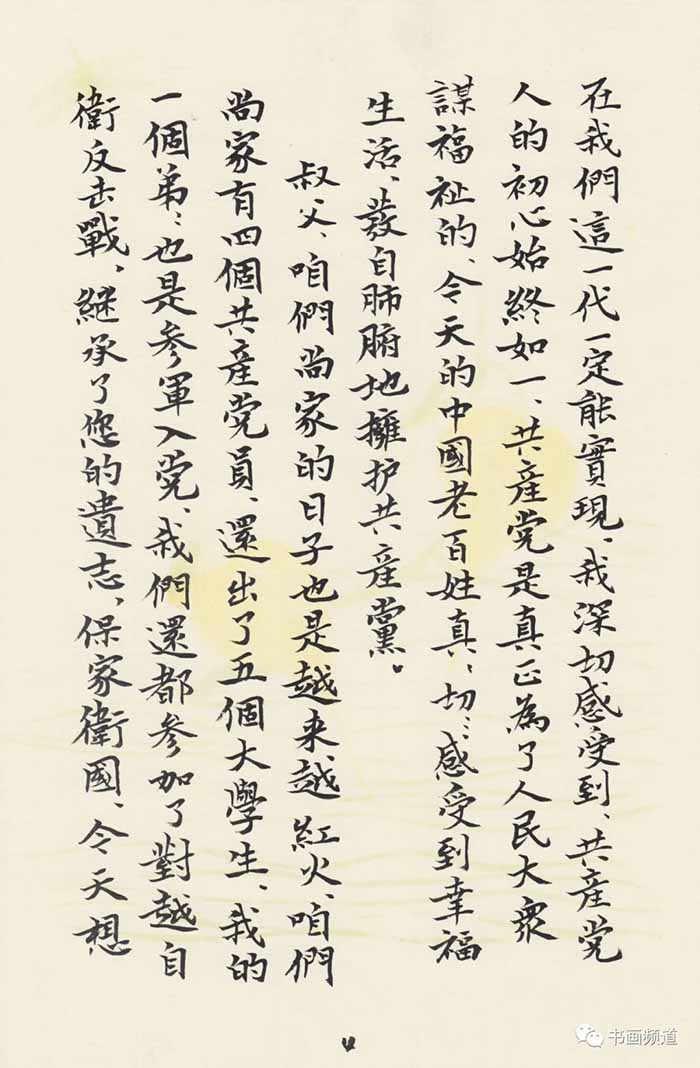 在我們這一代一定能實現、我深切感受到、共産党
人的初心始終如一、共産党是真正為了人民大衆
謀福祉的、今天的中國老百姓真、切、感受到幸福
生活、發自肺腑地擁护共産黨、
叔父、咱們尚家的日子也是越来越紅火、咱們
尚家有四個共産党員、還出了五個大學生、我的
一個弟：也是参軍入党、我們還都参加了對越自
衛反击戰、継承了您的遺志、保家衛國、今天想
4
书画频道